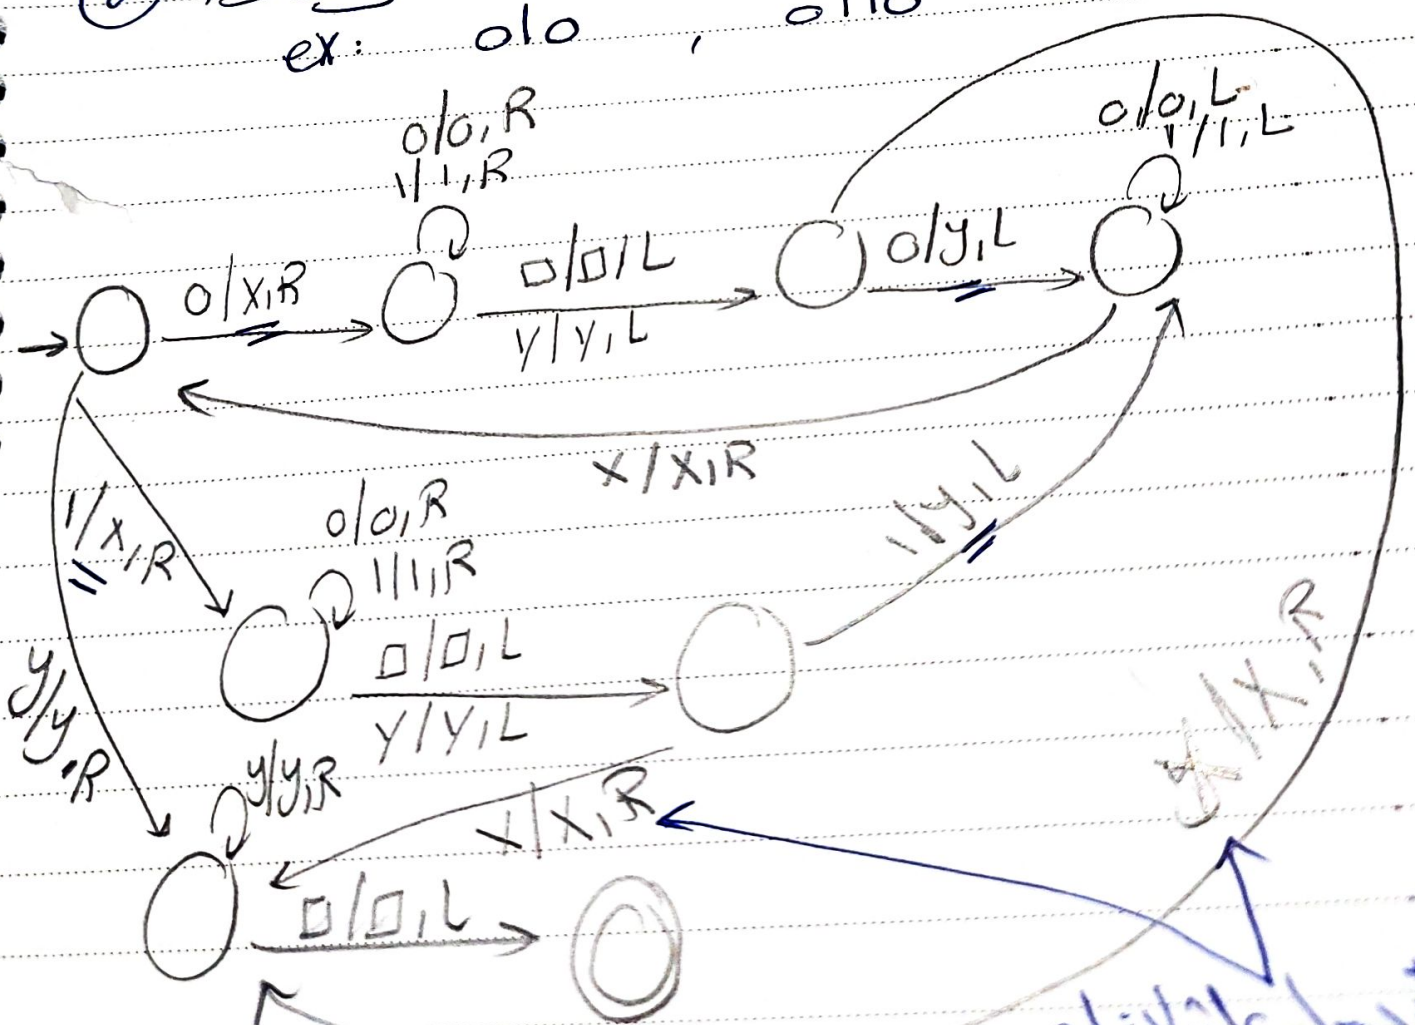 ex: 010 , 0110
0/0, R
1/1, R
0/0, L
1/1, L
0/x, R
□/□, L
y/y, L
0/y, L
x/x, R
1/x, R
0/0, R
1/1, R
□/□, L
y/y, L
1/y, L
y/y, R
y/y, R
x/x, R
□/□, L
/x, R